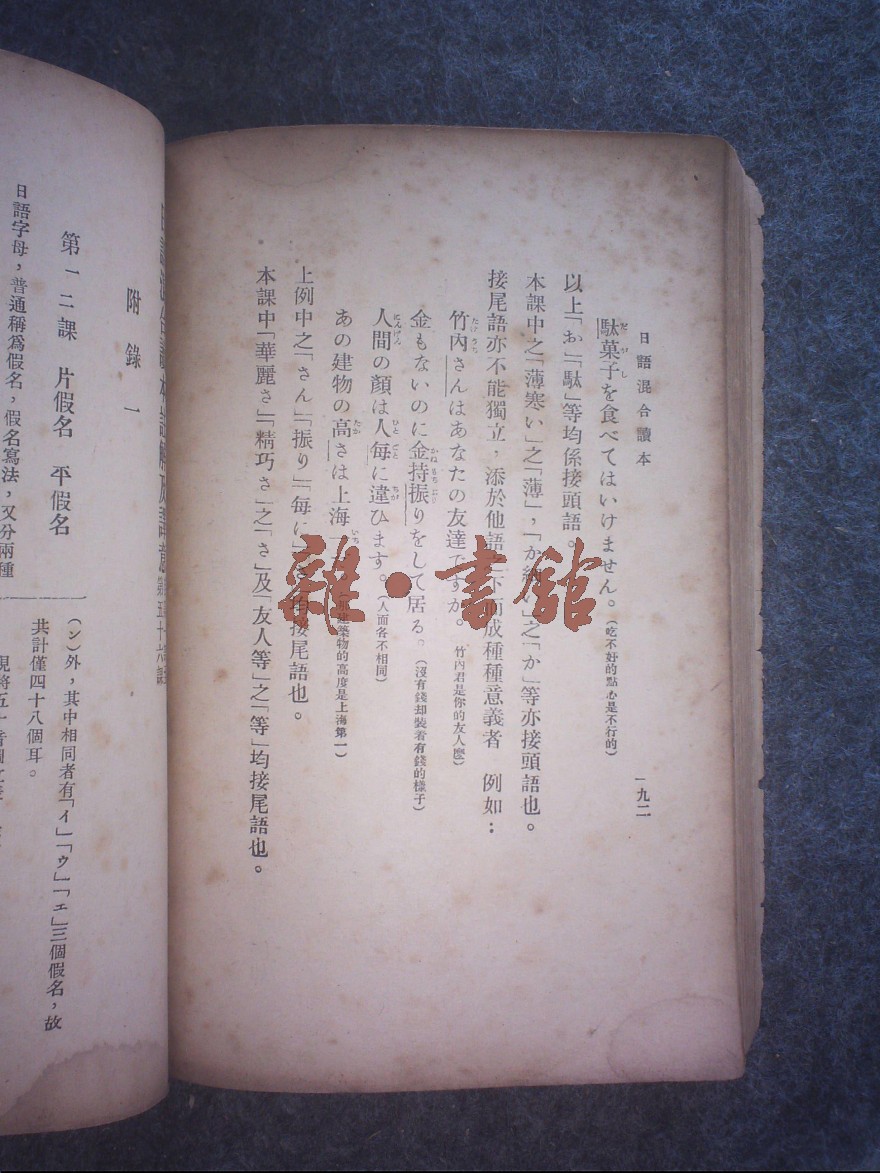 日語混合讀本
一九二
駄菓子を食べてはいけません。(吃不好的點心是不行的)
だがし
以上「お」「駄」等均係接頭語。
本課中之「薄寒い」之「薄」,「か 之「か」等亦接頭語也。
接尾語亦不能獨立,添於他語 下而成種種意義者 例如:
竹內さんはあなたの友達ですか。 竹內君是你的友人麼)
たけうち
金もないのに金持振りをして居る。(沒有錢却裝着有錢的樣子)
かねもちぶり
人間の顏は人每に違ひます。(人面各不相同)
にんげん ひとごと ちが
あの建物の高さは上海 。 建築物的高度是上海第一)
たか いち
上例中之「さん」「振り」「每に 均接尾語也。
本課中「華麗さ」「精巧さ」之「さ」及「友人等」之「等」均接尾語也。
雜·書館
附錄一
第一二課 片假名 平假名
日語字母,普通稱爲假名,假名寫法,又分兩種
(ン)外,其中相同者有「イ」「ウ」「エ」三個假名,故
共計僅四十八個耳。
現將五十音圖